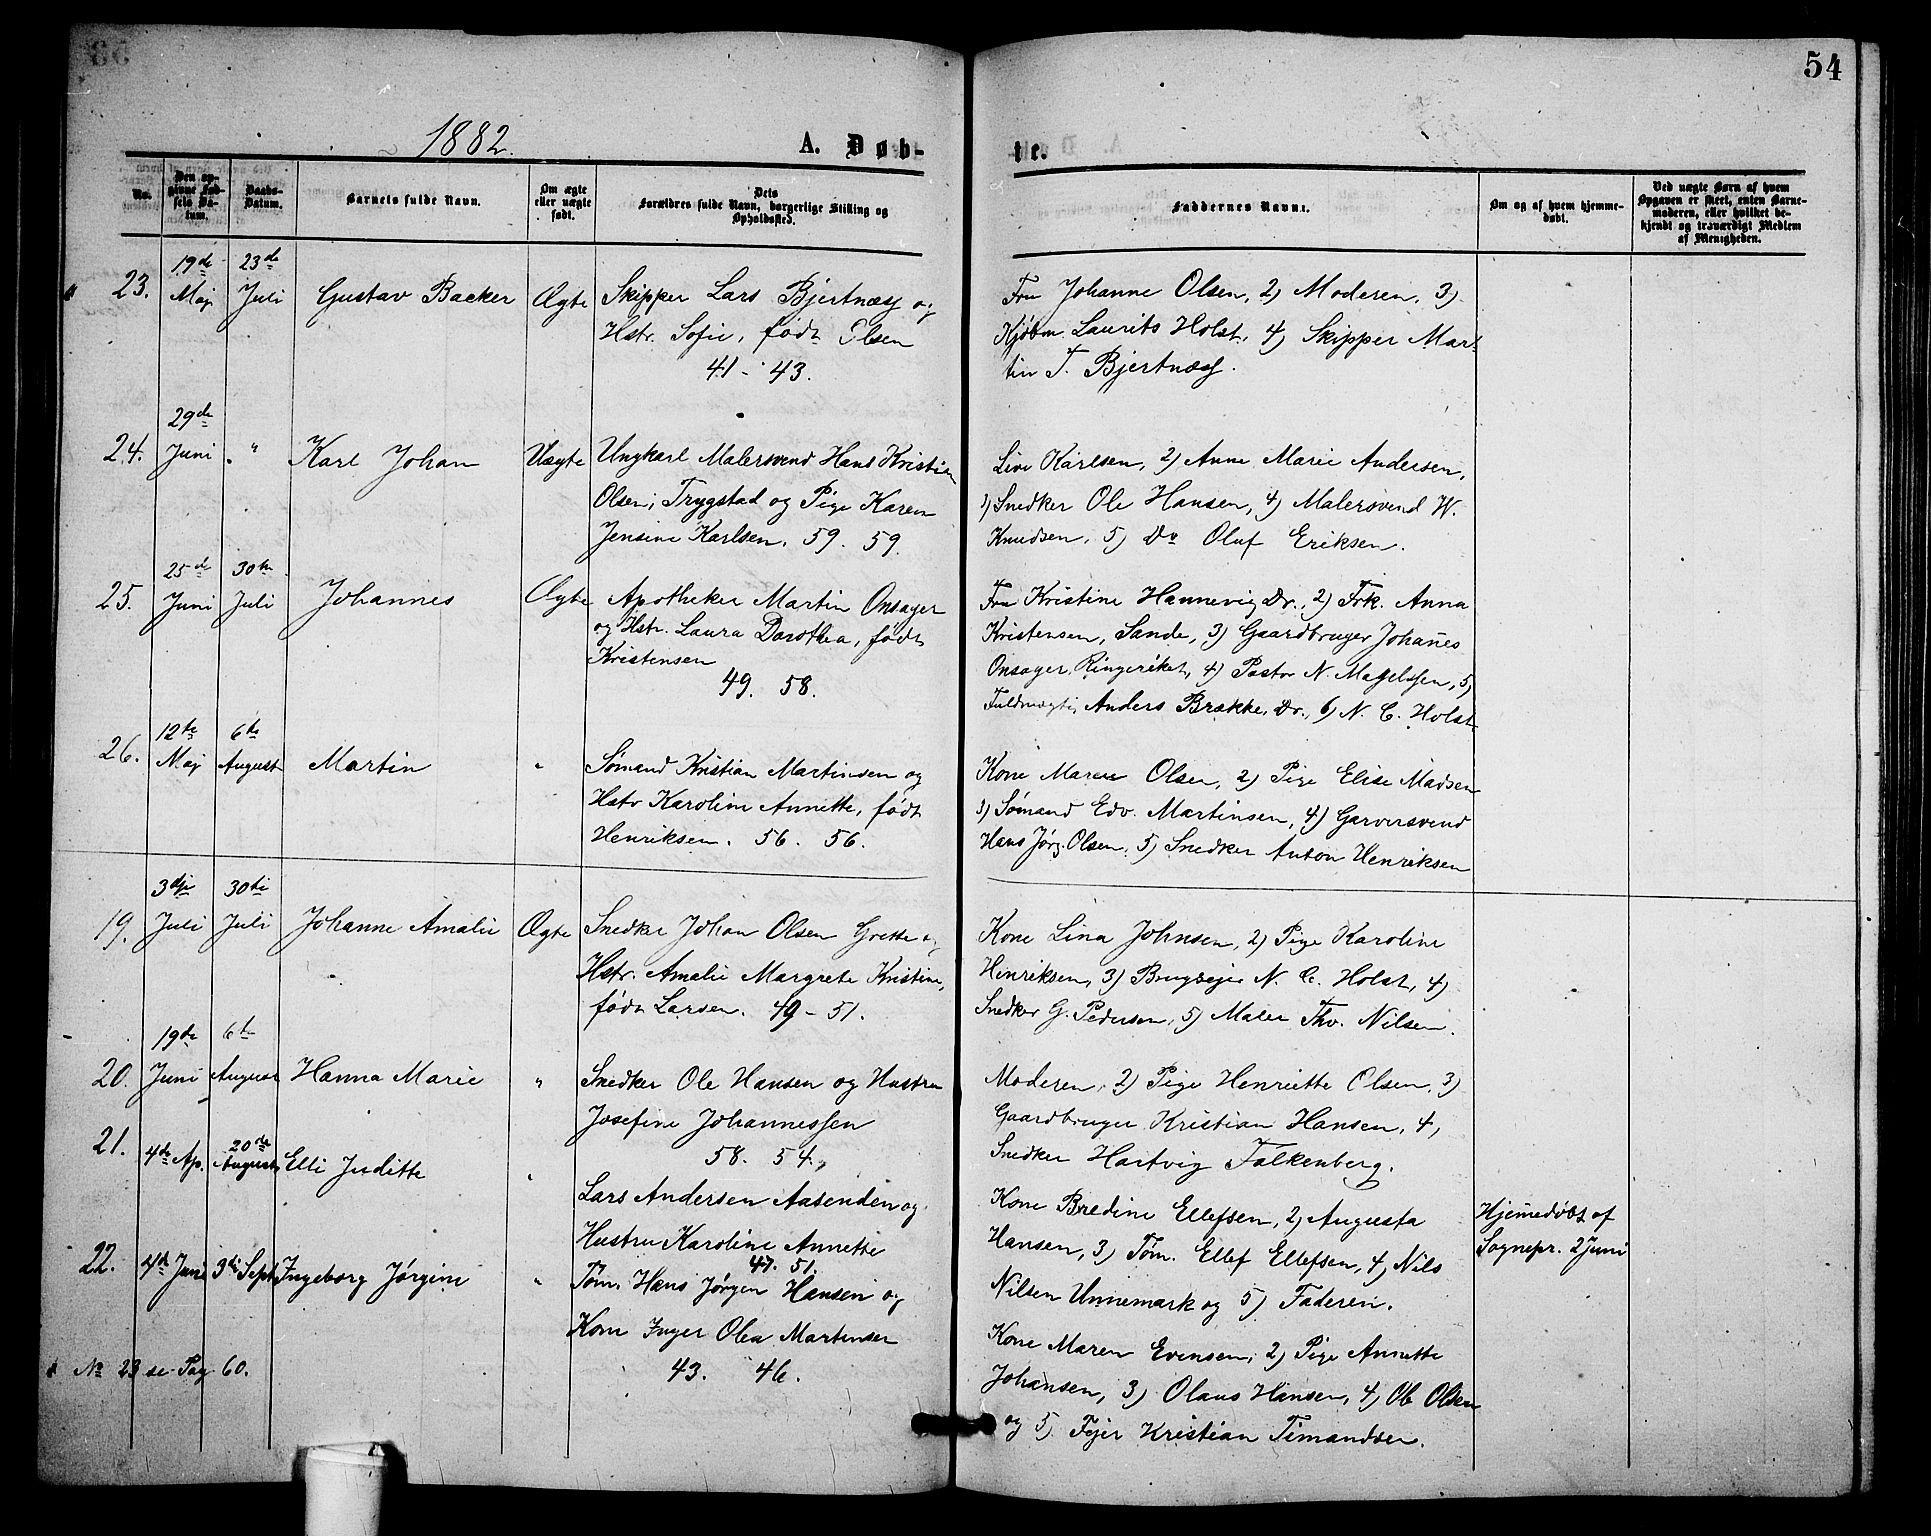 54
1882.
A. Døb-
te.
No.
Den op-
givne Fød-
sels Da-
tum.
Daabs-
Datum.
Barnets fulde Navn.
Om ægte
eller uægte
født.
Dets
Forældres fulde Navn, borgerlige Stilling og
Opholdssted.
Faddernes Navne.
Om og af hvem hjemme-
døbt.
Ved uægte Børn af hvem
Opgaven er skeet, enten Barne-
moderen, eller hvilket be-
kjendt og troværdigt Medlem
af Menigheden.
23.
19de
Maj
23de
Juli
Gustav Backer
Ægte
Skipper Lars Bjertnæs og
Hstr. Sofie, født Olsen
41 - 43.
Fru Johanne Olsen, 2) Moderen, 3)
Kjøbm. Laurits Holst, 4) Skipper Mar-
tin T. Bjertnæs.
24.
29de
Juni
"
Karl Johan
Uægte
Ungkarl Malersvend Hans Kristian
Olsen, Trygstad og Pige Karen
Jensine Karlsen. 59. 59.
Live Karlsen, 2) Anne Marie Andersen,
3) Snedker Ole Hansen, 4) Malersvend W.
Knudsen, 5) Do Oluf Eriksen.
25.
25de
Juni
30te
Juli
Johannes
Ægte
Apotheker Martin Onsager
og Hstr. Laura Dorothea, født
Kristensen
49. 58.
Fru Kristine Hannevig Dr., 2) Frk. Anna
Kristensen, Sande, 3) Gaardbruger Johanes
Onsager, Ringeriket, 4) Pastor N. Magelssen, 5)
Fuldmægti. Anders Brække, Dr., 6) N. C. Holst
26.
12te
Maj
6te
August
Martin
"
Sømand Kristian Martinsen og
Hstr Karoline Annette, født
Henriksen. 56. 56.
Kone Maren Olsen, 2) Pige Elise Madsen
3) Sømand Edv. Martinsen, 4) Garversvend
Hans Jørg. Olsen, 5) Snedker Anton Henriksen
19.
3dje
Juli
30te
Juli
Johanne Amalie
Ægte
Snedker Johan Olsen Grette og
Hstr. Amalie Margrete Kristine,
født Larsen. 49 - 51.
Kone Lina Johnsen, 2) Pige Karoline
Henriksen, 3) Brugsejer N. C. Holst, 4)
Snedker G. Pedersen, 5) Maler Thv. Nilsen.
20.
19de
Juni
6te
August
Hanna Marie
"
Snedker Ole Hansen og Hustru
Josefine Johannessen
58. 54.
Moderen, 2) Pige Henriette Olsen, 3)
Gaardbruger Kristian Hansen, 4)
Snedker Hartvig Falkenberg.
21.
4de Ap.
20de
August
Elli Juditte
"
Lars Andersen Aasenden og
Hustru Karoline Annette
47. 51.
Kone Bredine Ellefsen, 2) Augusta
Hansen, 3) Tøm. Ellef Ellefsen, 4) Nils
Nilsen Unnemark og 5) Faderen.
Hjemmedøbt af
Sognepr. 2 Juni
22.
4de Juni
3die Sept.
Ingeborg Jørgine
"
Tøm. Hans Jørgen Hansen og
Kone Inger Olea Martinsen
43. 46.
Kone Maren Evensen, 2) Pige Annette
Johansen, 3) Olaus Hansen, 4) Ole Olsen
og 5) Fejer Kristian Timandsen.
No 23 se Pag 60.